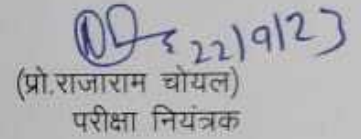 22/9/23
(प्रो.राजाराम चोयल)
परीक्षा नियंत्रक